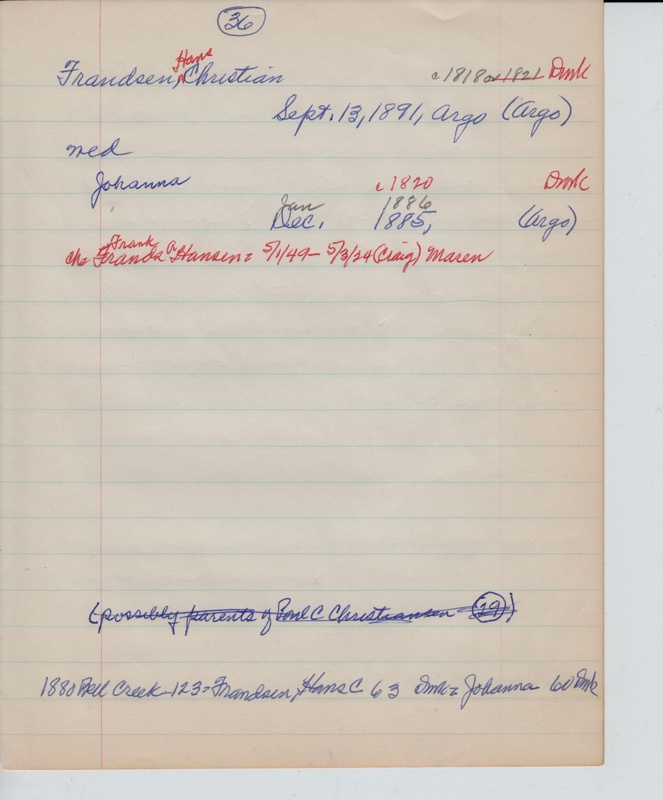 36
Hans
Frandsen, Christian c 1818 or 1821 Dmk
Sept. 13, 1891, Argo (Argo)
wed
Johanna c 1820 Dmk
Jan 1886
Dec. 1885, (Argo)
Frank
che Hansen = 5/1/49 - 5/3/24 (Craig) Maren
(possibly parents of Poul C Christiansen - 29)
1880 Bell Creek - 123 = Frandsen, Hans C 63 Dmk = Johanna 60 Dmk